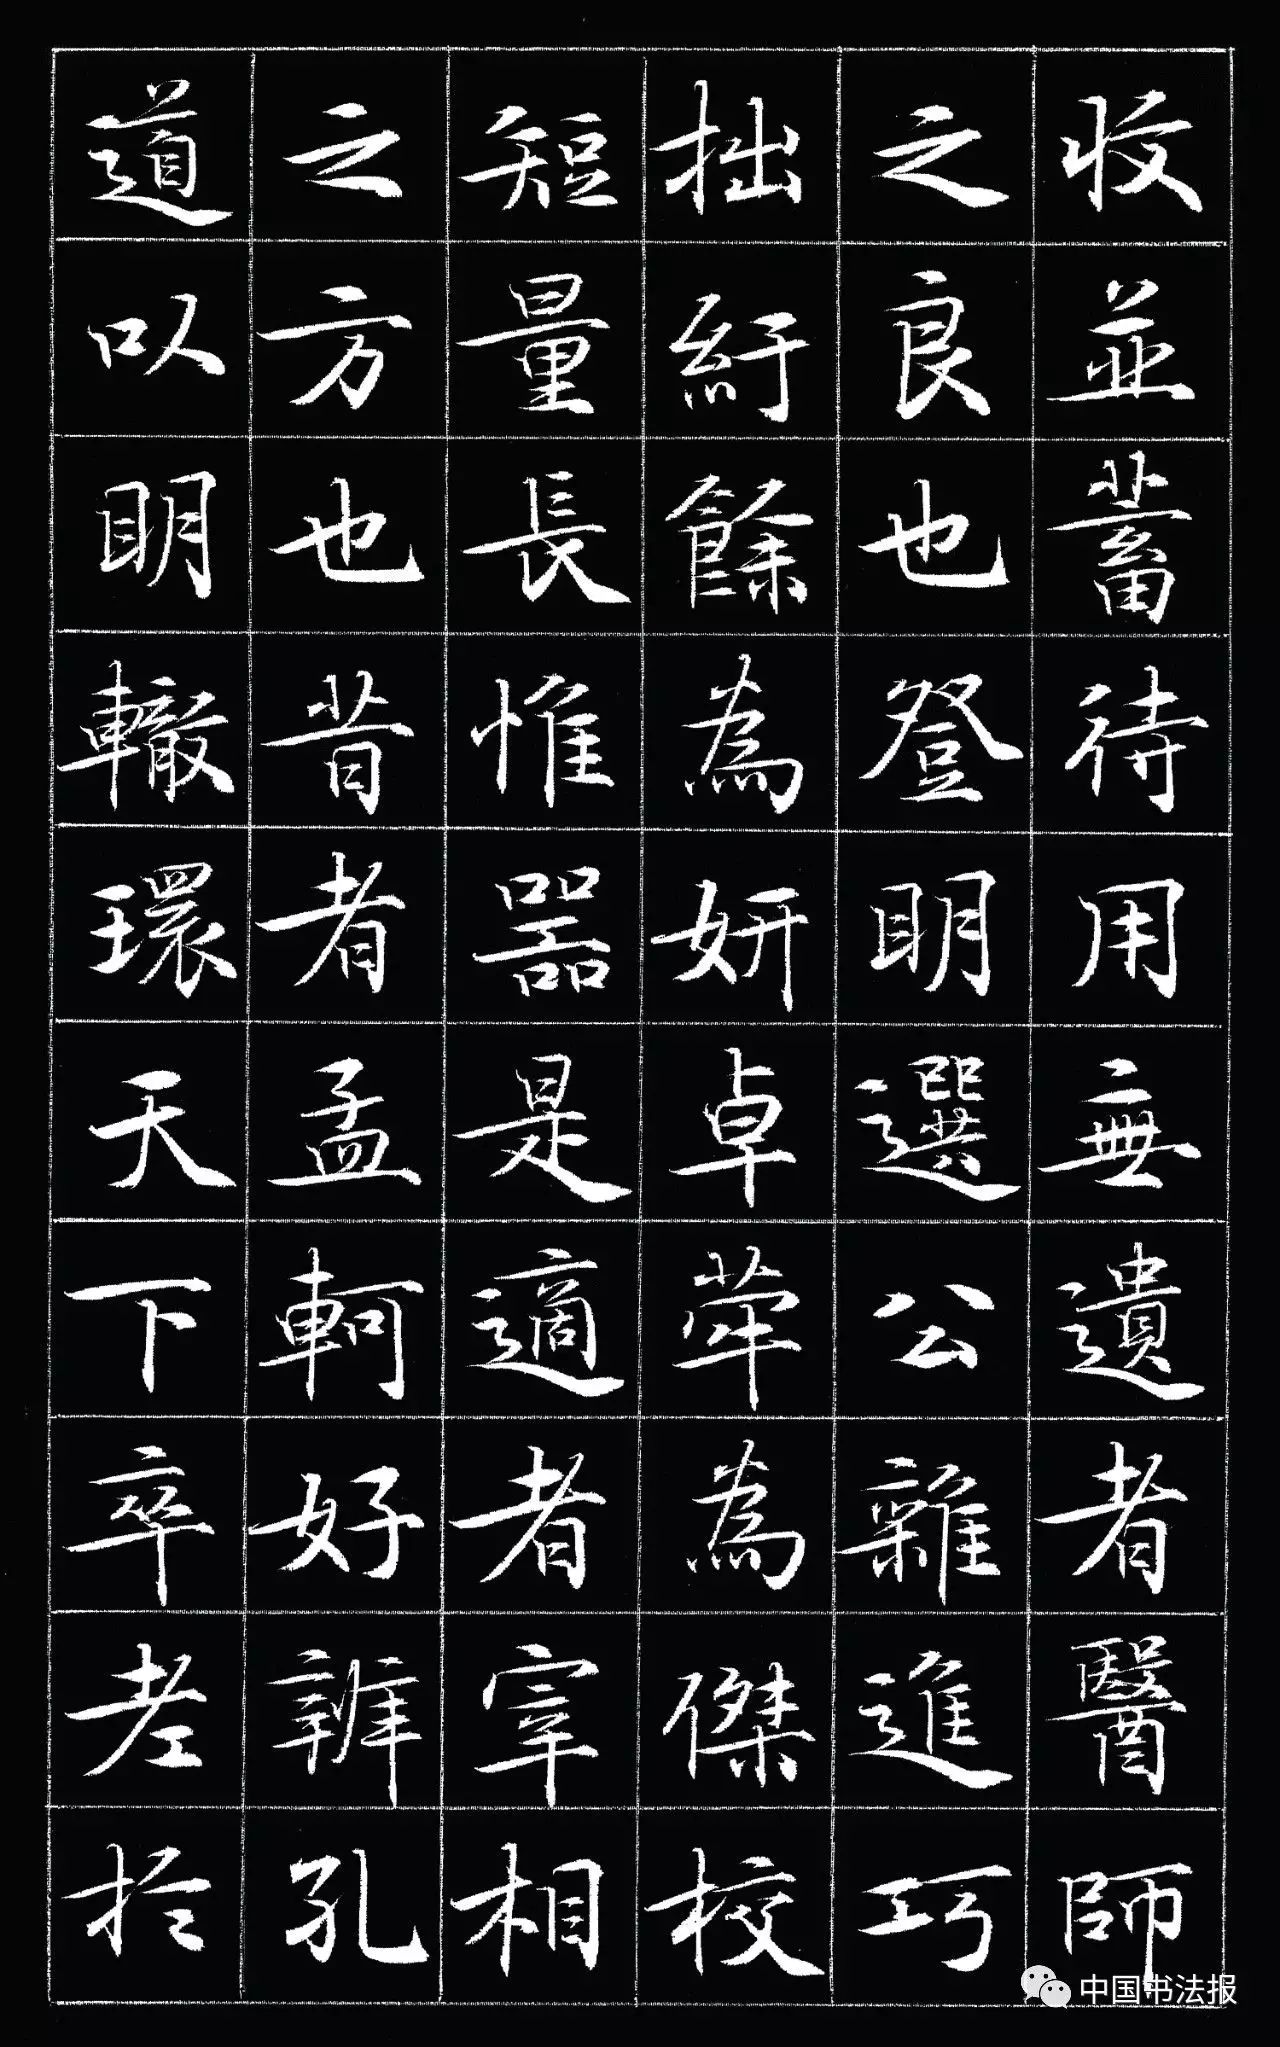 收並蓄待用無遺者醫師
之良也登眀選公雜進巧
拙紆餘為妍卓犖為傑校
短量長惟器是適者宰相
之方也昔者孟軻好辨孔
道以眀轍環天下卒老於
中国书法报